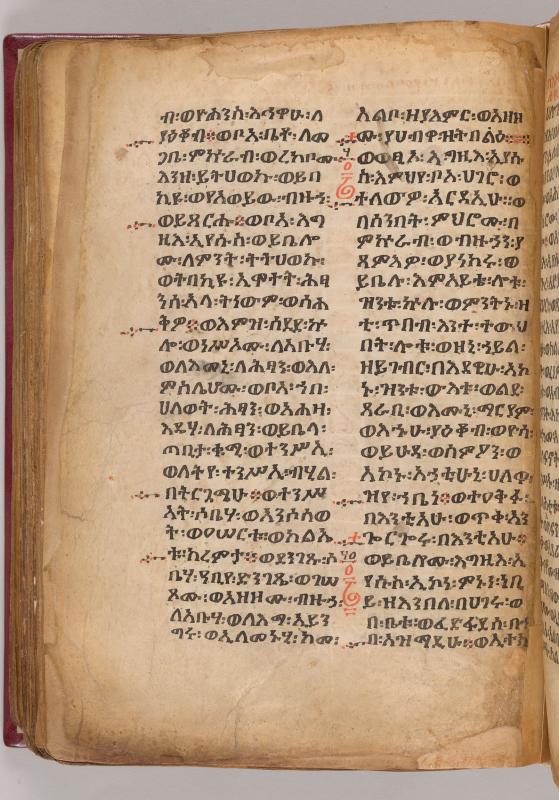 ብ፡ወዮሐንስ፡እኅዋሁ፡ለ
ያዕቆብ፡፡ወቦአ፡ቤቶ፡ለመ
ጋቤ፡ምኵራብ፡ወረከቦሙ፡
እንዘ፡ይትሀወኩ፡ወይበ
ክዩ፡ወየአወይው፡ብዙኅ፡
ወይጸርሑ፡፡ወቦአ፡እግ
ዚእ፡ኢየሱስ፡ወይቤሎ
ሙ፡ለምንት፡ትትሀወኩ፡
ወትበክዩ፡ኢሞተት፡ሕፃ
ንሰ፡አላ፡ትነውም፡ወሰሐ
ቅዎ፡፡ወእምዝ፡ሰደደ፡ኵ
ሎ፡ወነሥኦሙ፡ለአቡሃ፡
ወለእማ፡ለሕፃን፡ወእለ፡
ምስሌሆሙ፡ወቦአ፡ኀበ፡
ሀለወት፡ሕፃን፡ወአሐዛ፡
እዴሃ፡ለሕፃን፡ወይቤላ፡
ጣቢታ፡ቁሚ፡ወተንሥኢ፡
ወለትየ፡ተንሥኢ፡ብሂል፡
በትርጓሜሁ፡፡ወተንሥ
አት፡ሶቤሃ፡ወአንሶሰወ
ት፡ወዐሠርቱ፡ወክልኤ
ቱ፡ከረምታ፡፡ወደንገጹ፡ሶ
ቤሃ፡ዓቢየ፡ድንጋጼ፡ወገሠ
ጾሙ፡ወአዘዞሙ፡ብዙኅ፡
ለአቡሃ፡ወለእማ፡ኢይን
ግሩ፡ወኢለመኑሂ፡ከመ፡
አልቦ፡ዘያአምር፡ወአዘዞ
ሙ፡የሀብዋ፡ዘትበልዕ፡፡
ወወፂኦ፡እግዚእ፡ኢየሱ
ስ፡እምህየ፡ቦአ፡ሀገሮ፡ወ
ተለውዎ፡አርዳኢሁ፡፡ወ
በሰንበት፡ምህሮሙ፡በ
ምኵራብ፡ወብዙኃን፡ያ
ጸምእዎ፡ወያነክሩ፡ወ
ይቤሉ፡እምአይቴ፡ሎቱ፡
ዝንቱ፡ኵሉ፡ወምንትኑ፡ዛ
ቲ፡ጥበብ፡እንተ፡ተውህ
በት፡ሎቱ፡ወዘኒ፡ኀይል፡
ዘይገብር፡በእደዊሁ፡አኮ
ኑ፡ዝንቱ፡ውእቱ፡ወልደ፡
ጸራቢ፡ወእሙኒ፡ማርያም፡
ወአኀዉሁ፡ያዕቆብ፡ወዮሳ፡
ወይሁዳ፡ወስምዖን፡ወ
አኮኑ፡አኃቲሁኒ፡ሀለዋ፡
ዝየ፡ኀቤነ፡፡ወተዐቅፉ፡
በእንቲአሁ፡ወጥቀ፡አን
ጐርጐሩ፡በእንቲአሁ፡፡
ወይቤሎሙ፡እግዚእ፡ኢ
የሱስ፡ኢኮነ፡ምኑነ፡ነቢ
ይ፡ዘእንበለ፡በሀገሩ፡ወ
በ፡ቤቱ፡ወፈድፋደሰ፡በኀ
በ፡አዝማዲሁ፡፡ወኢተክ